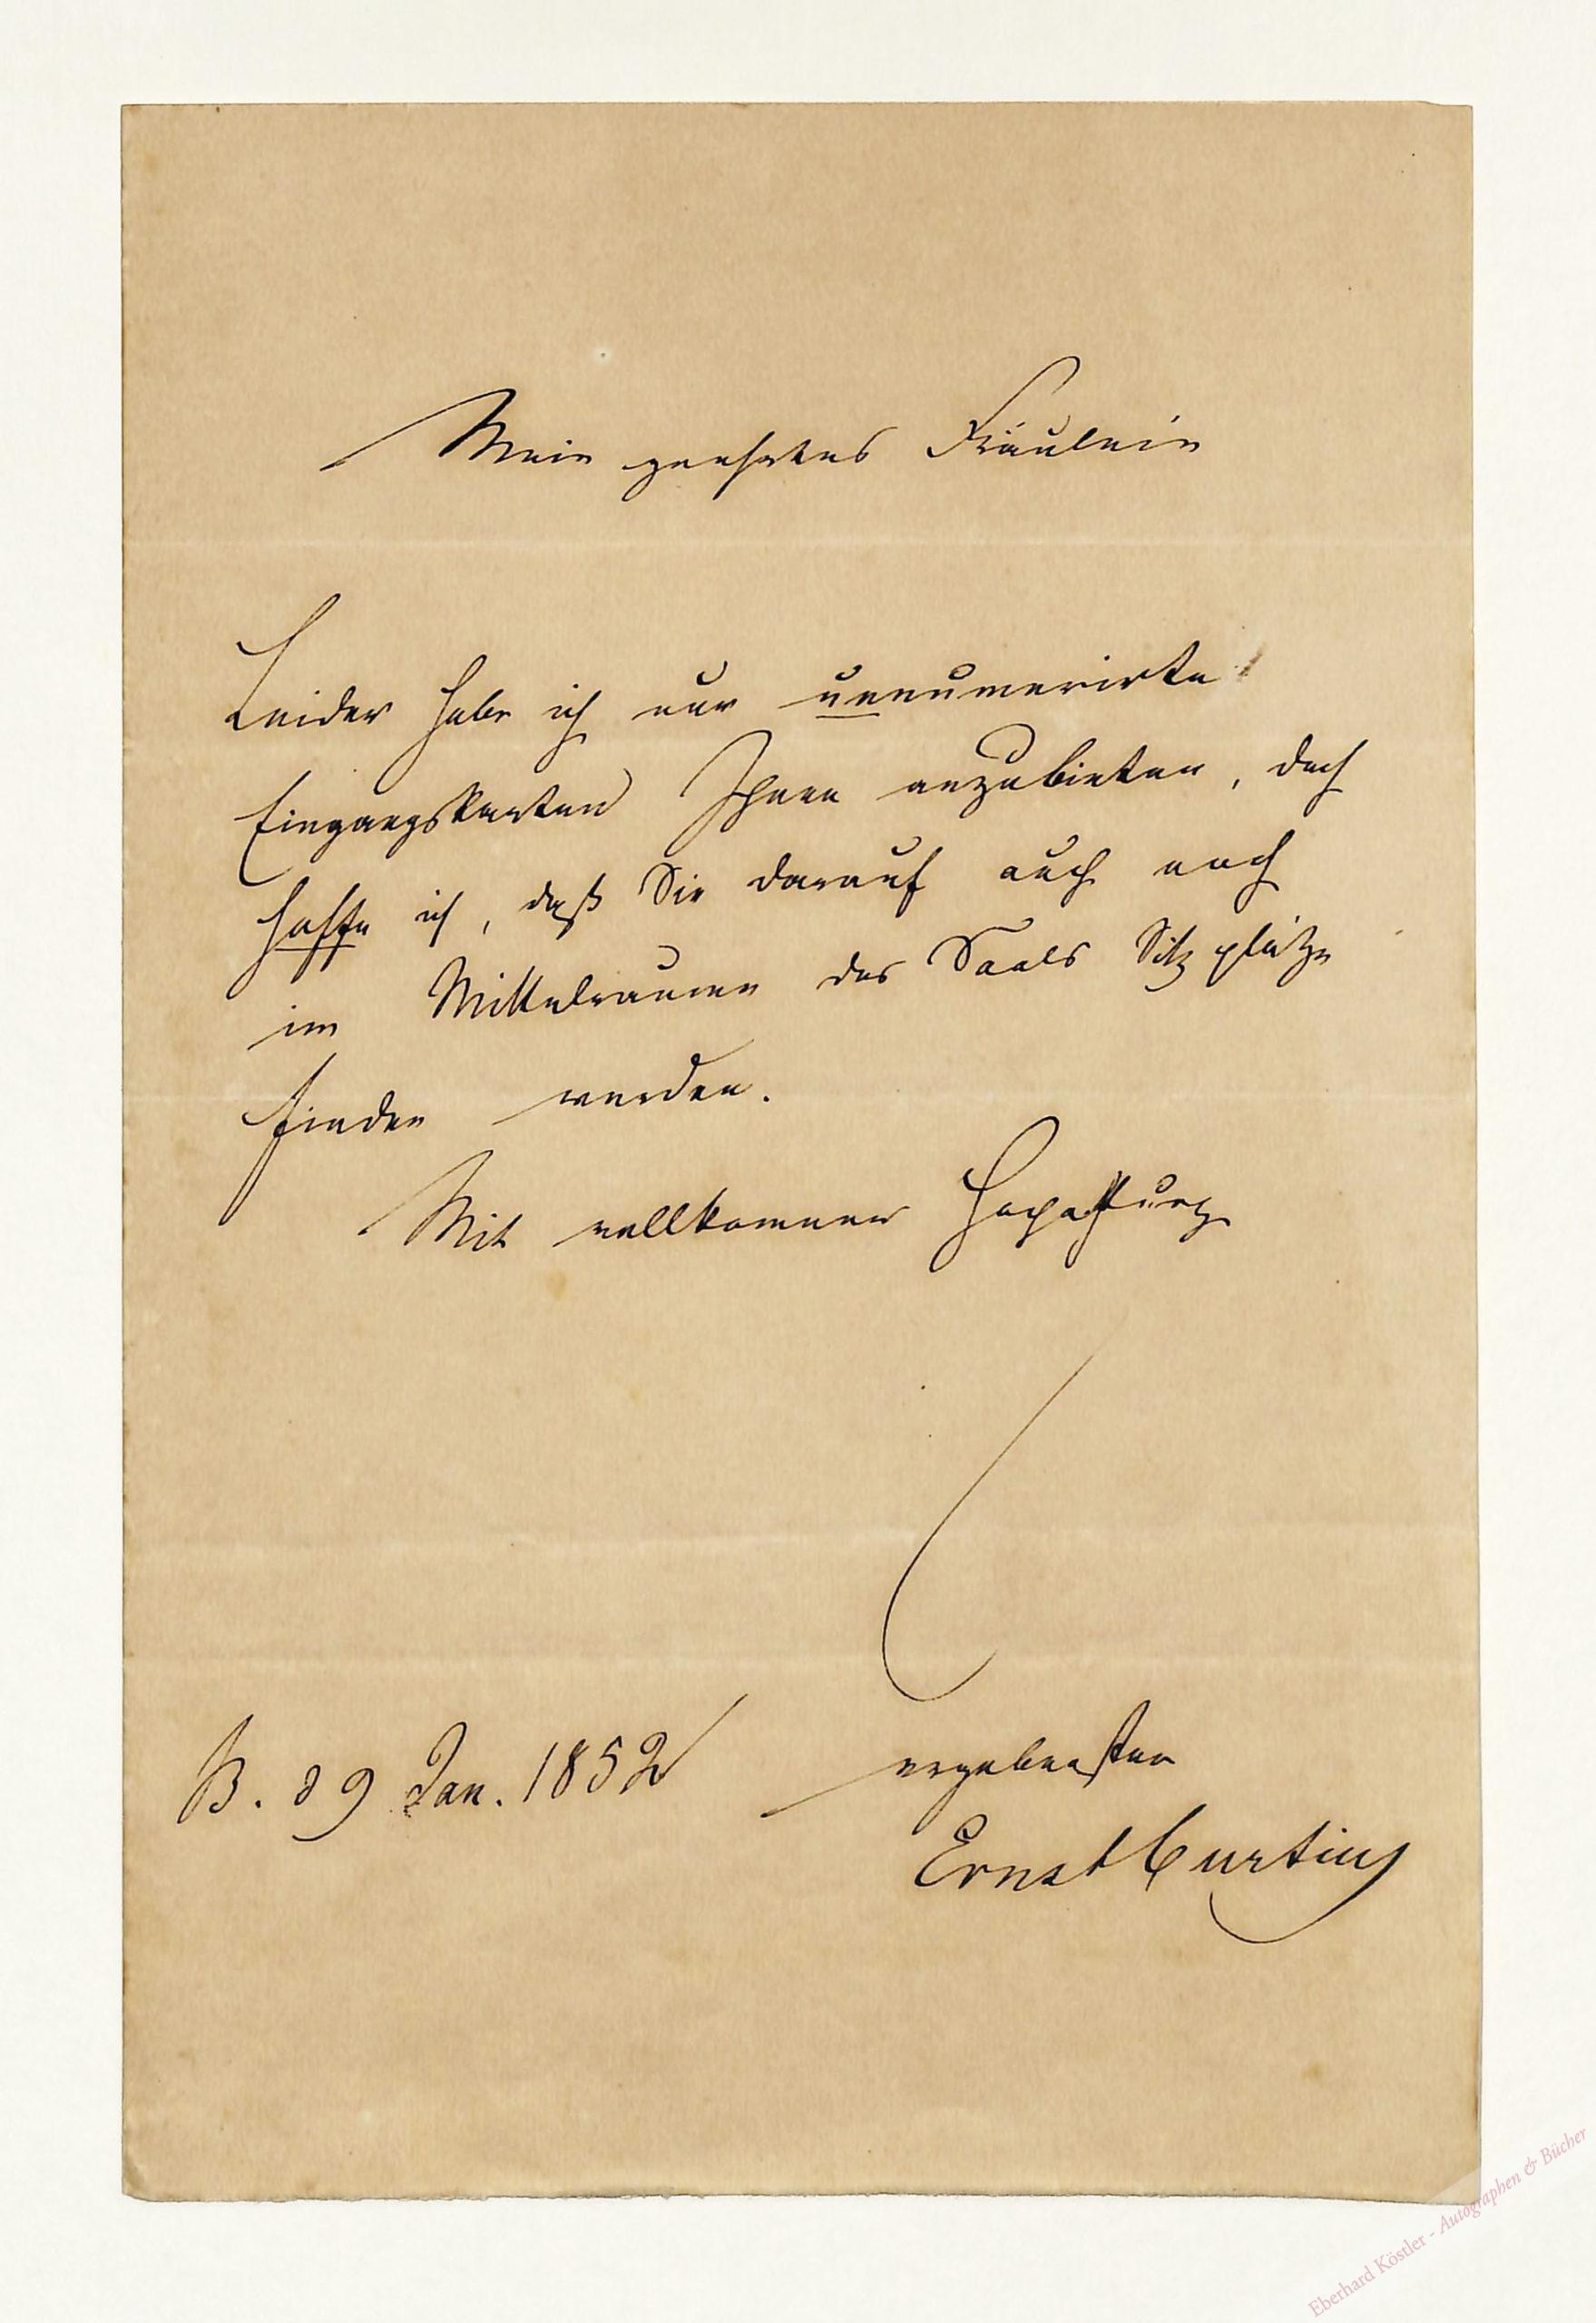 Mein geehrtes Fräulein
Leider habe ich nur unnumerirte
Eingangskarten Ihnen anzubieten, doch
hoffe ich, daß Sie darauf auch noch
im Mittelraume des Saals Sitzplätze
finden werden.
Mit vollkommner Hochachtung
B. d 9 Jan. 1852
ergebenster
Ernst Curtius
Eberhard Köstler - Autographen & Bücher